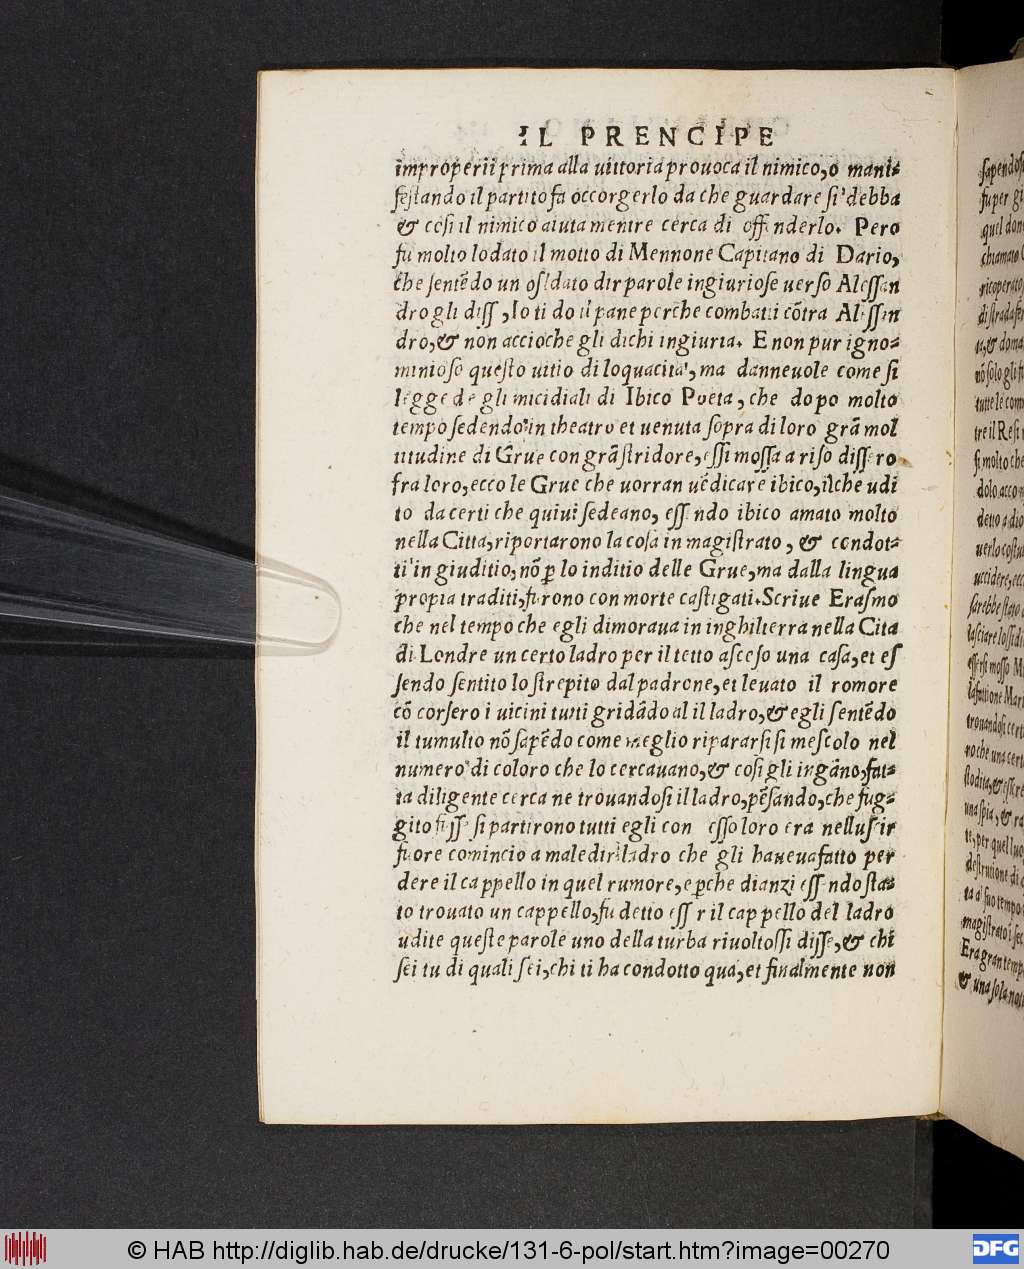 IL PRENCIPE
improperii prima alla uittoria prouoca il nimico, o mani-
festando il partito fa occorgerlo da che guardare si debba
& cosi il nimico aiuta mentre cerca di off nderlo. Pero
fu molto lodato il motto di Mennone Capitano di Dario,
che sentẽdo un osldato dir parole ingiuriose uerso Alessan
dro gli diss , Io ti do il pane perche combatti cõtra Al ss n
dro, & non accioche gli dichi ingiuria. E non pur igno-
minioso questo uitio di loquacita', ma danneuole come si
legge de gli micidiali di Ibico Poeta, che dopo molto
tempo sedendo in theatro et uenuta sopra di loro grã mol
titudine di Grue con grã stridore, essi mossa a riso dissero
fra loro, ecco le Grue che uorran uẽdicare ibico, ilche udi
to da certi che quiui sedeano, ess ndo ibico amato molto
nella Citta, riportarono la cosa in magistrato, & condot-
ti in giuditio, nõ ꝑ lo inditio delle Grue, ma dalla lingua
propia traditi, furono con morte castigati. Scriue Erasmo
che nel tempo che egli dimoraua in inghilterra nella Cita
di Londre un certo ladro per il tetto asceso una casa, et es
sendo sentito lo strepito dal padrone, et leuato il romore
cõ corsero i uicini tutti gridãdo al il ladro, & egli sentẽdo
il tumulto nõ sapẽdo come meglio ripararsi si mescolo nel
numero di coloro che lo cercauano, & cosi gli ingãno, fat-
ta diligente cerca ne trouandosi il ladro, pẽsando, che fug-
gito fuss si partirono tutti egli con esso loro era nell uscir
fuore comincio a maledir il ladro che gli haueua fatto per
dere il cappello in quel rumore, e ꝑche dianzi ess ndo sta-
to trouato un cappello, fu detto ess r il cappello del ladro
udite queste parole uno della turba riuoltossi disse, & chi
sei tu di quali sei, chi ti ha condotto qua, et finalmente non
sapendos
fu per gi
quel don
chiamato
ricoperato
di strada
u, & doma
nõ solo gli
tutte le com
tre il Resi
fi molto che
dolo acco
detto a dio
uerlo costu
uccidere, ecc
sarebbe stato
lasciare lo
essersi mosso M
la fattione Mar
trouandosi cert
no che una cert
stodita, & essere
una spia, & ra
te, per quel luo
destrutione di
ta a' suo tempo
magistrato i sec
Era gran temp
& una sola not
© HAB http://diglib.hab.de/drucke/131-6-pol/start.htm?image=00270
DFG